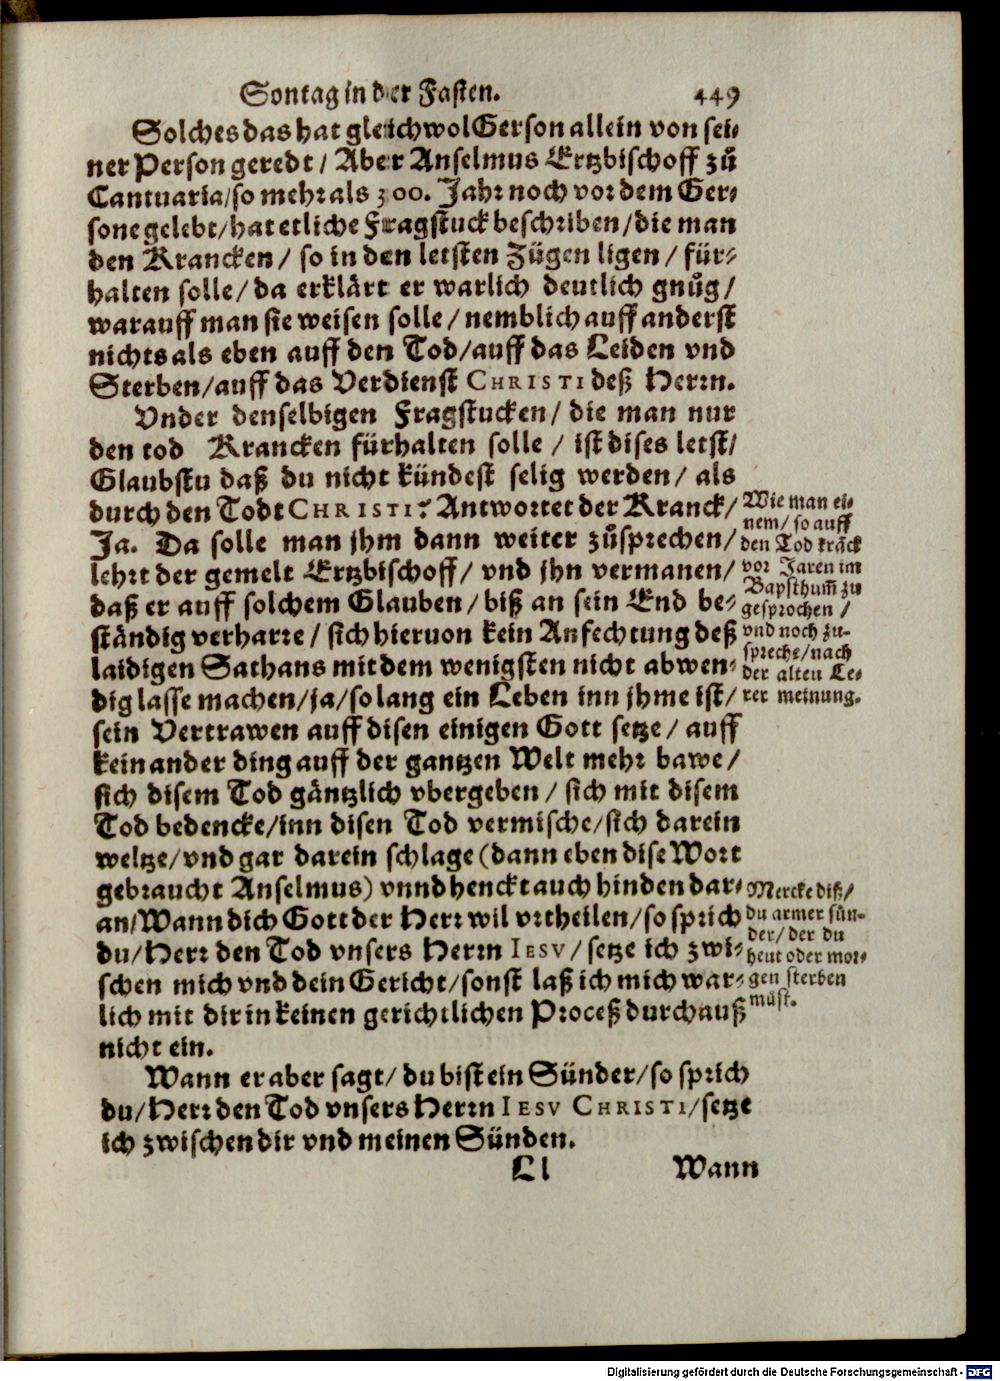 Sontag in der Fasten. 449
Solches das hat gleichwol Gerson allein von sei-
ner Person geredt / Aber Anselmus Ertzbischoff zů
Cantuaria/so mehr als 300. Jahr noch vor dem Ger-
sone gelebt/hat etliche Fragstuck beschriben/die man
den Krancken / so in den letsten Zügen ligen / für-
halten solle/da erklärt er warlich deutlich gnůg/
warauff man sie weisen solle/nemblich auff anderst
nichts als eben auff den Tod/auff das Leiden vnd
Sterben/auff das Verdienst CHRISTI deß Herrn.
Vnder denselbigen Fragstucken/die man nur
den tod Krancken fürhalten solle / ist dises letst/
Glaubstu daß du nicht kündest selig werden/als
durch den Todt CHRISTI? Antwortet der Kranck/
Ja. Da solle man jhm dann weiter zůsprechen/
lehrt der gemelt Ertzbischoff/vnd jhn vermanen/
daß er auff solchem Glauben/biß an sein End be-
ständig verharre/sich hieruon kein Anfechtung deß
laidigen Sathans mit dem wenigsten nicht abwen-
dig lasse machen/ja/so lang ein Leben inn jhme ist/
sein Vertrawen auff disen einigen Gott setze/auff
kein ander ding auff der gantzen Welt mehr bawe/
sich disem Tod gäntzlich vbergeben/sich mit disem
Tod bedencke/inn disen Tod vermische/sich darein
weltze/vnd gar darein schlage (dann eben dise Wort
gebraucht Anselmus) vnnd henckt auch hinden dar-
an/Wann dich Gott der Herr wil vrtheilen/so sprich
du/Herr den Tod vnsers Herrn IESV/setze ich zwi-
schen mich vnd dein Gericht/sonst laß ich mich war-
lich mit dir in keinen gerichtlichen Proceß durchauß
nicht ein.
Wann er aber sagt/du bist ein Sünder/so sprich
du/Herr den Tod vnsers Herrn IESV CHRISTI/setze
ich zwischen dir vnd meinen Sünden.
Ll Wann
Wie man ei-
nem/so auff
den Tod kräck
vor Jaren im
Bapsthum̃ zu
gesprochen /
vnd noch zu-
spreche/nach
der alten Le-
rer meinung.
Mercke diß/
du armer sün-
der/der du
heut oder mor-
gen sterben
můst.
Digitalisierung gefördert durch die Deutsche Forschungsgemeinschaft - DFG